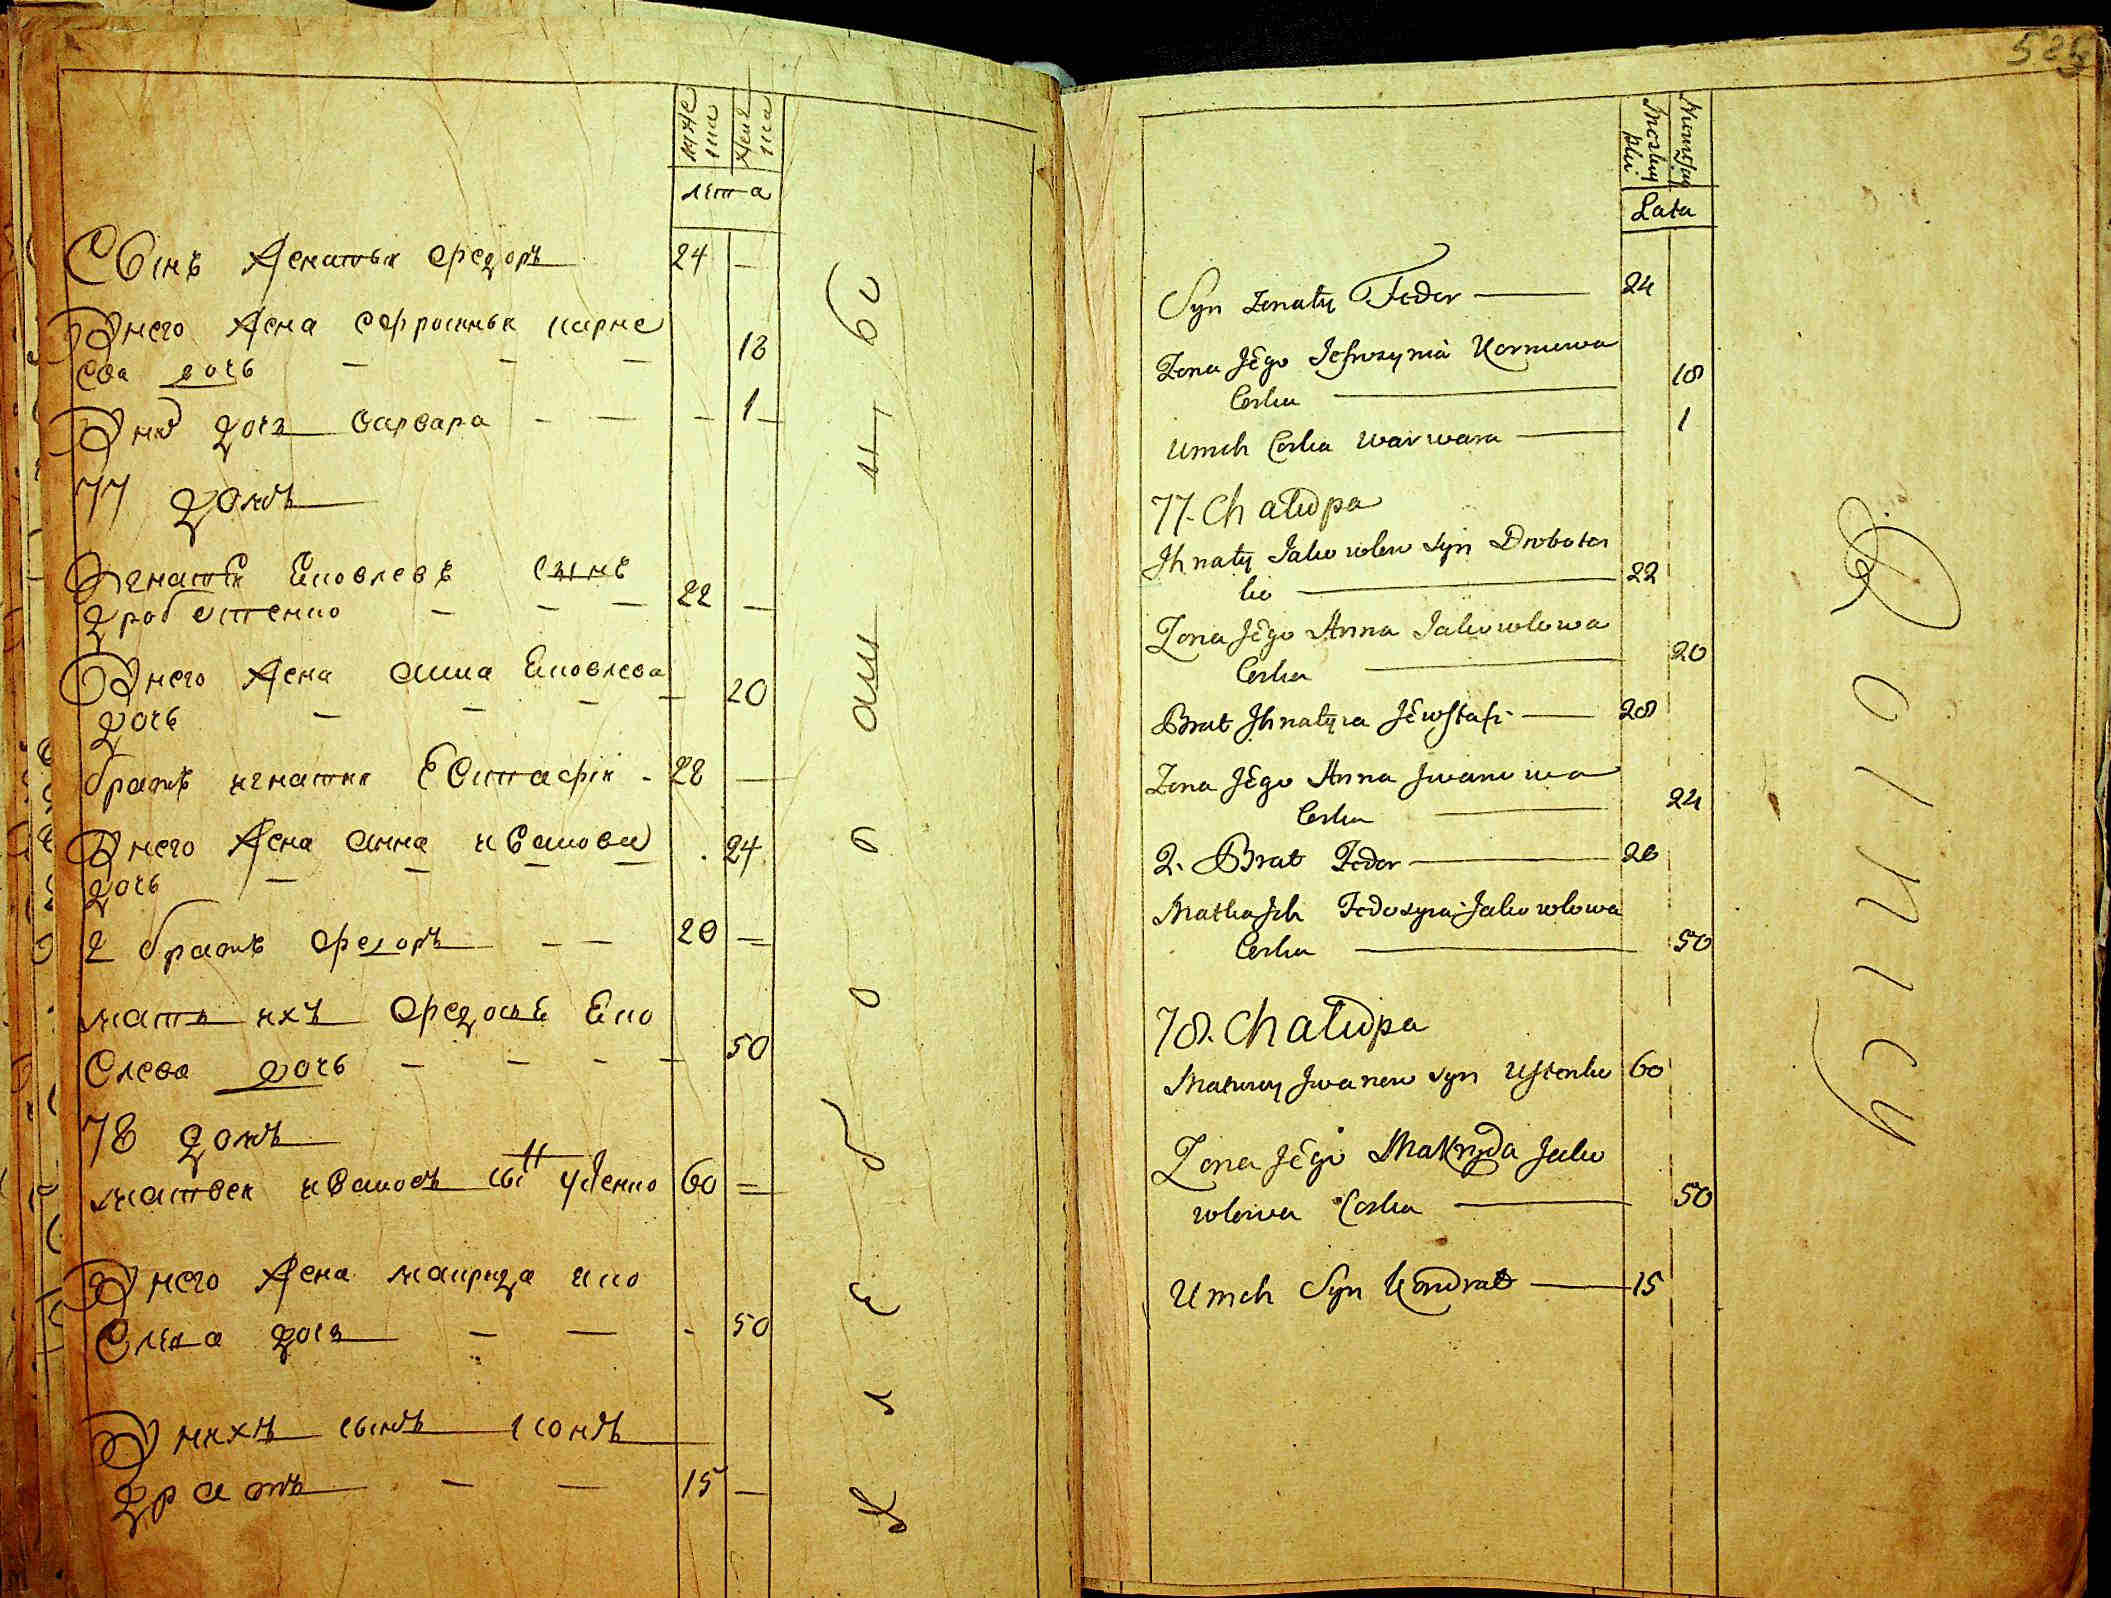 муже
ска
женс
ка
лета
Сынъ женатый федоръ 24 —
Унего жена Єфросиния карне
ева дочъ — — — 18
Уних дочъ варвара — — — 1
77 домъ
Игнатей Яковлевъ сынъ
дроботенко — — — 22 —
Унего жена анна Яковлева
дочъ — — — — 20
братъ игнатия Евстафій - 28 —
Унего жена анна иванова
дочъ — — — 24
2 братъ федоръ — — 20 —
мать ихъ федосия Яко
влева дочъ — — — — 50
78 домъ
матвей ивановъ сынъ устенко 60 —
Унего жена макрида яко
влева дочъ — — - 50
Унихъ сынъ кон
дратъ — — 15 —
хлебопашцы
525
Męzkey
Lata
Syn Żonaty Fedor —— 24
Zona Jego Jefrozynia Korniewa
Corka —— 18
Umch Corka Warwara —— 1
77. Chałupa
Jhnaty Jakowlew syn Droboten
ko —— 22
Zona Jego Anna Jakowlowa
Corka —— 20
Brat Jhnatya Jewstafi —— 28
Zona Jego Anna Jwanowa
Corka —— 24
2. Brat Fedor —— 20
Matka Jch Fedosya Jakowlowa
Corka —— 50
78. Chałupa
Matwey Jwanow syn Ustenko 60
Zona Jego Makryda Jako
wlowa Corka —— 50
Umch Syn Kondrat —— 15
Rolnicy